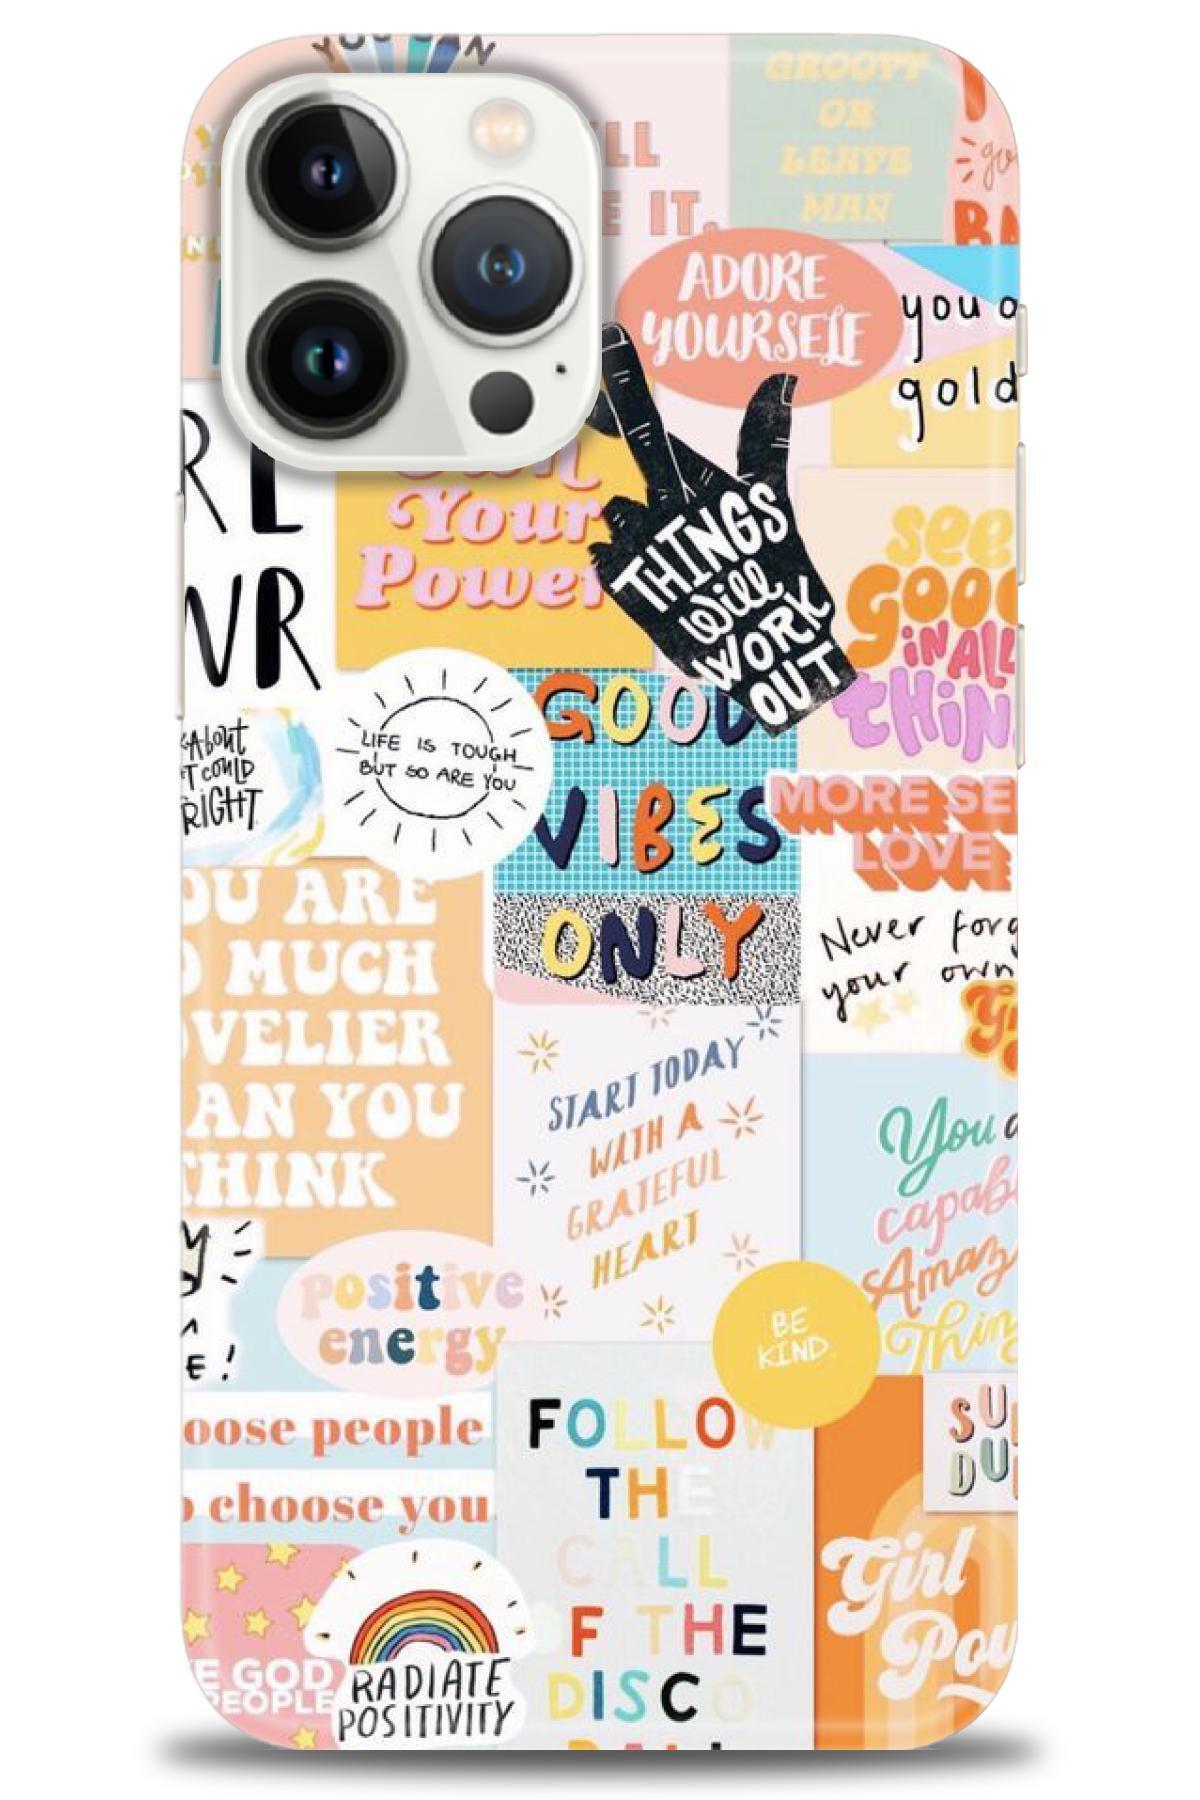 YOU CAN
GROOVY
OR
LEAVE
MAN
LL
E IT.
ADORE
YOURSELF
you a
gold
Own
Your
Power
THINGS
Will
WORK
OUT
see
GOOD
IN ALL
THIN
RL
WR
About
T COULD
RIGHT
LIFE IS TOUGH
BUT SO ARE YOU
GOOD
VIBES
ONLY
MORE SE
LOVE
Never forg
your own
OU ARE
O MUCH
VELIER
AN YOU
THINK
START TODAY
WITH A
GRATEFUL
HEART
You a
capab
Amaz
Thin
positive
energy
BE
KIND.
E!
oose people
o choose you.
FOLLOW
THE
CALL
OF THE
DISCO
BALL
SU
DU
Girl
Pow
E GOD
PEOPLE
RADIATE
POSITIVITY